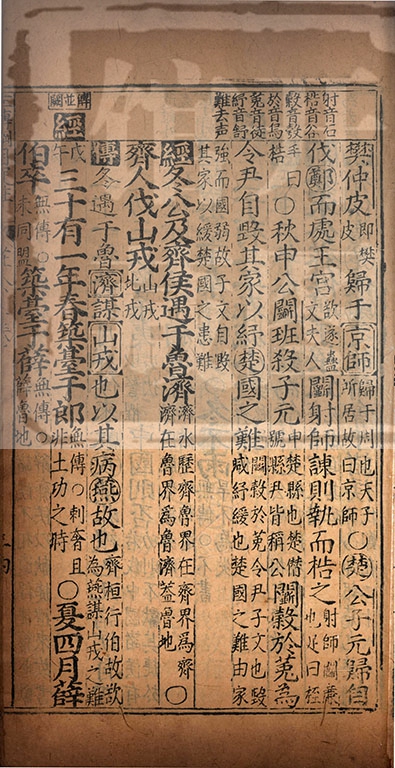 射音石
梏音谷
㲉音彀
於音烏
菟音徒
紓音舒
難去声
樊仲皮即樊皮歸于京師歸于周也天子所居故曰京師○楚公子元歸自
伐鄭而處王宮欲遂蠱文夫人鬭射師諫則執而梏之射師鬭亷也足曰桎
手曰梏○秋申公鬭班殺子元申楚縣也楚僭號縣尹皆稱公鬭㲉於菟為
令尹自毀其家以紓楚國之難鬭㲉於菟令尹子文也毀減紓緩也楚國之難由家
強而國弱故子文自毀其家以緩楚國之患難
經冬公及齊侯遇于魯濟濟水歷齊魯界在齊界為齊濟在魯界為魯濟蓋魯地○
齊人伐山戎山戎北戎
傳冬遇于魯濟謀山戎也以其病燕故也齊桓行伯故欲為燕謀山戎之難
戊午
經三十有一年春築臺于郎無傳○刺奢且非土功之時○夏四月薛
伯卒無傳○未同盟築臺于薛無傳○薛魯地